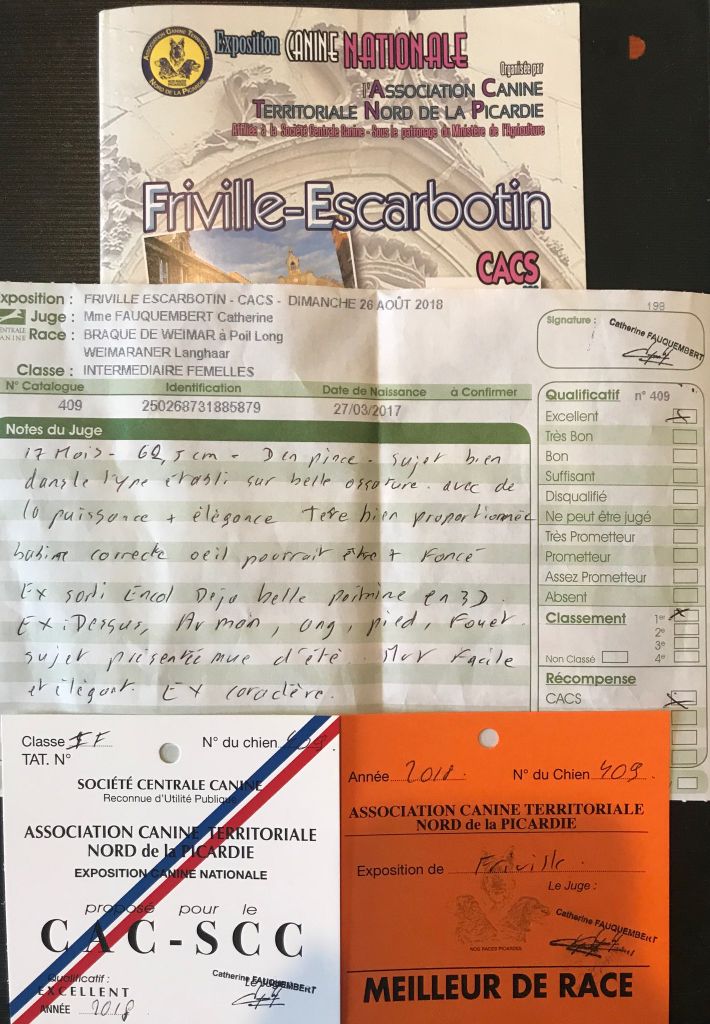 ASSOCIATION CANINE TERRITORIALE
NORD DE LA PICARDIE
Exposition CANINE NATIONALE
Organisée par
l'ASSOCIATION CANINE
TERRITORIALE NORD DE LA PICARDIE
Affiliée à la Société Centrale Canine - Sous le patronage du Ministère de l'Agriculture
Friville-Escarbotin
CACS
xposition : FRIVILLE ESCARBOTIN - CACS - DIMANCHE 26 AOÛT 2018
198
Juge : Mme FAUQUEMBERT Catherine
Race : BRAQUE DE WEIMAR à Poil Long
WEIMARANER Langhaar
Classe : INTERMEDIAIRE FEMELLES
CENTRALE
CANINE
Signature :
Catherine FAUQUEMBERT
N° Catalogue Identification Date de Naissance à Confirmer
409 250268731885879 27/03/2017
Notes du Juge
17 Mois - 62,5 cm - Den pince. sujet bien
dans le type établi sur belle ossature. avec de
la puissance + élégance Tete bien proportionnée
babine correcte oeil pourrait être + Foncé
Ex sorti Encol Deja belle poitrine en 3D.
EX: Dessus, Av main, ang, pied, Fouet.
sujet présentée mue d'été. Mvt Facile
et élégant. EX caractère.
Qualificatif n° 409
Excellent
Très Bon
Bon
Suffisant
Disqualifié
Ne peut être jugé
Très Prometteur
Prometteur
Assez Prometteur
Absent
Classement 1er
2e
3e
Non Classé 4e
Récompense
CACS
Classe IF N° du chien 409
TAT. N°
SOCIÉTÉ CENTRALE CANINE
Reconnue d'Utilité Publique
ASSOCIATION CANINE TERRITORIALE
NORD de la PICARDIE
EXPOSITION CANINE NATIONALE
proposé pour le
CAC-SCC
Qualificatif :
EXCELLENT
Le Juge
Catherine FAUQUEMBERT
ANNÉE 2018
Année 2018. N° du Chien 409
ASSOCIATION CANINE TERRITORIALE
NORD de la PICARDIE
Exposition de Friville.
Le Juge :
Catherine FAUQUEMBERT
NOS RACES PICARDES
MEILLEUR DE RACE